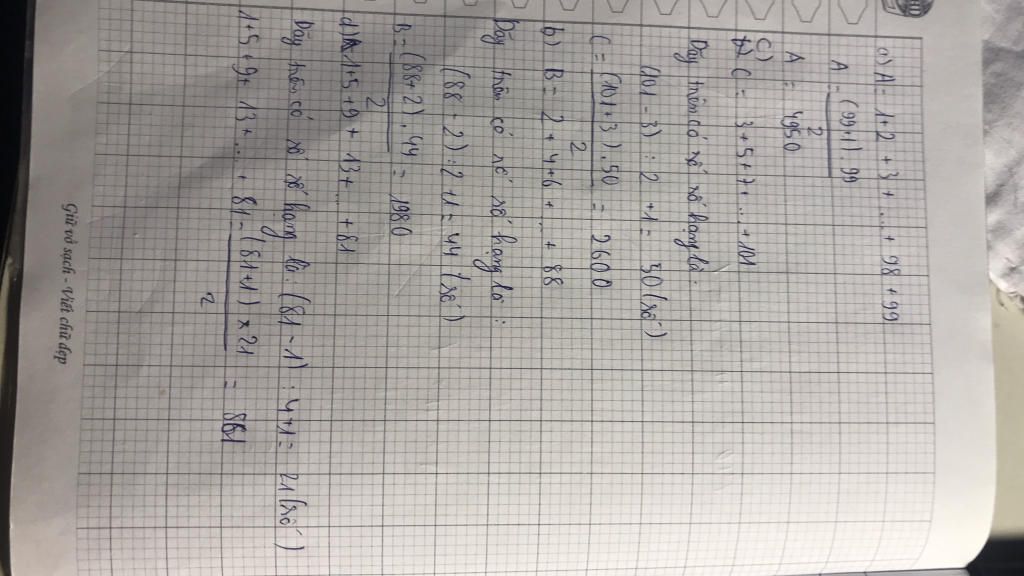 a) A = 1+2 +3+ ... + 98 + 99
A = (99+1) . 99 / 2
A = 4950
c) C = 3+5+7+ ... + 101
Dãy trên có số số hạng là :
(101 - 3) : 2 +1 = 50 (số)
C = (101+3) . 50 / 2 = 2600
b) B = 2 + 4+6+ ... + 88
Dãy trên có số số hạng là :
(88 - 2) : 2 + 1 = 44 (số)
B = (88+2) . 44 / 2 = 1980
d) 1+5 +9 + 13+ ... + 81
Dãy trên có số số hạng là : (81 - 1) : 4+1 = 21 (số)
1+5 +9+ 13+ ... + 81 = (81+1) x 21 / 2 = 861
Giữ vở sạch - Viết chữ đẹp